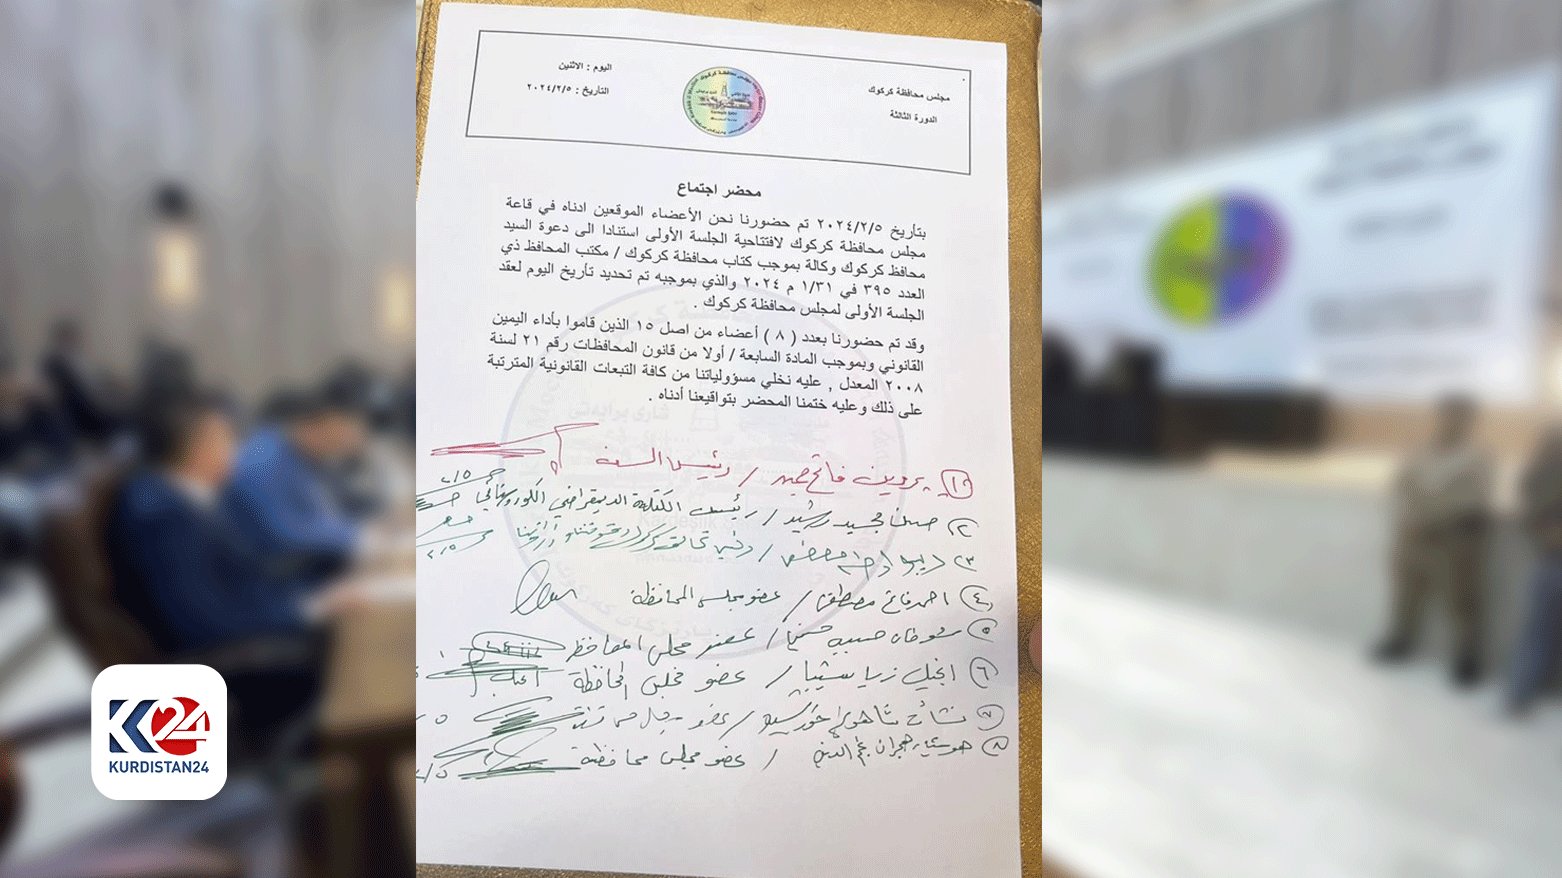 مجلس محافظة كركوك
الدورة الثالثة
اليوم : الاثنين
التاريخ : ٢٠٢٤/٢/٥
محضر اجتماع
بتأريخ ٢٠٢٤/٢/٥ تم حضورنا نحن الأعضاء الموقعين ادناه في قاعة
مجلس محافظة كركوك لافتتاحية الجلسة الأولى استنادا الى دعوة السيد
محافظ كركوك وكالة بموجب كتاب محافظة كركوك / مكتب المحافظ ذي
العدد ٣٩٥ في ١/٣١ م ٢٠٢٤ والذي بموجبه تم تحديد تأريخ اليوم لعقد
الجلسة الأولى لمجلس محافظة كركوك .
وقد تم حضورنا بعدد ( ٨ ) أعضاء من اصل ١٥ الذين قاموا بأداء اليمين
القانوني وبموجب المادة السابعة / أولا من قانون المحافظات رقم ٢١ لسنة
٢٠٠٨ المعدل , عليه نخلي مسؤولياتنا من كافة التبعات القانونية المترتبة
على ذلك وعليه ختمنا المحضر بتواقيعنا أدناه .
شاري برايەتى
١) پروين فاتح / رئيس السن
٢) حسن مجيد رشيد / رئيس الكتلة الديمقراطي الكوردستاني
٣) / رئيس
٤) احمد فاتح مصطفى / عضو مجلس المحافظة
٥) / عضو مجلس المحافظة
٦) انجيل زيا شيبا / عضو مجلس المحافظة
٧) نشأت شاهويز خورشيد / عضو
٨) نجم الدين / عضو مجلس محافظة
K24
KURDISTAN24